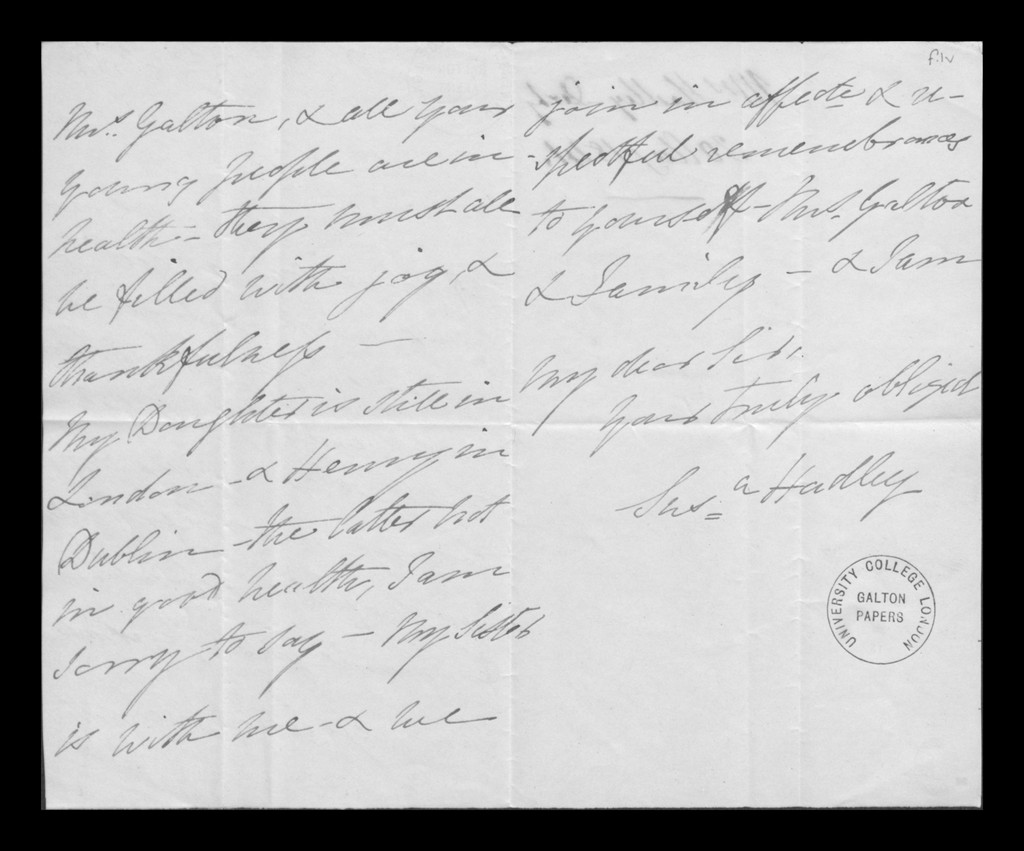 f.1v
Mrs. Galton, & all your
young people are in
health - they must all
be filled with joy, &
thankfulness —
My Daughter is still in
London - & Henry in
Dublin - the latter not
in good health, I am
sorry to say — My Sister
is with me - & we
join in affecte & re-
-spectful remembrances
to yourself - Mrs. Galton
& Family — & I am
My dear Sir,
Your truly obliged
Susa Hadley
UNIVERSITY COLLEGE LONDON
GALTON
PAPERS